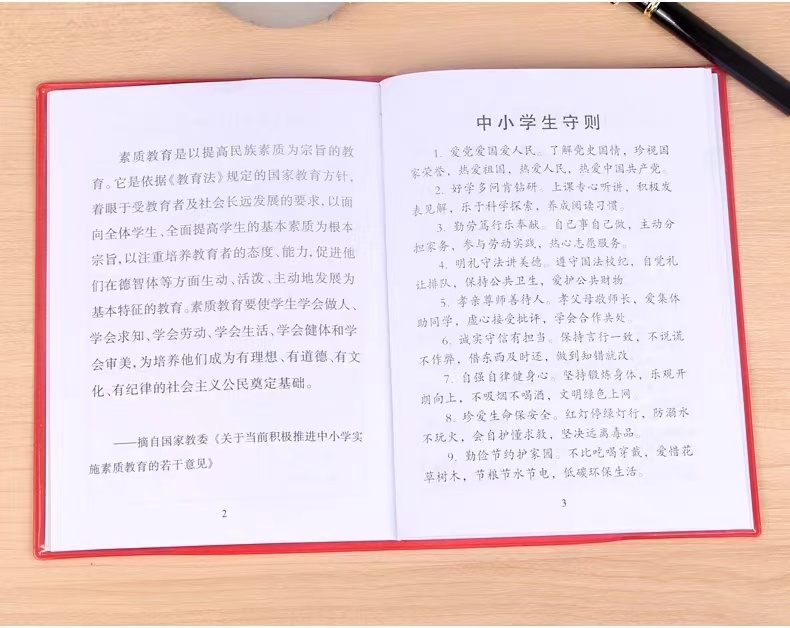 素质教育是以提高民族素质为宗旨的教
育。它是依据《教育法》规定的国家教育方针，
着眼于受教育者及社会长远发展的要求，以面
向全体学生、全面提高学生的基本素质为根本
宗旨，以注重培养教育者的态度、能力，促进他
们在德智体等方面生动、活泼、主动地发展为
基本特征的教育。素质教育要使学生学会做人、
学会求知、学会劳动、学会生活、学会健体和学
会审美，为培养他们成为有理想、有道德、有文
化、有纪律的社会主义公民奠定基础。
——摘自国家教委《关于当前积极推进中小学实
施素质教育的若干意见》
2
中小学生守则
1. 爱党爱国爱人民。了解党史国情，珍视国
家荣誉，热爱祖国，热爱人民，热爱中国共产党。
2. 好学多问肯钻研。上课专心听讲，积极发
表见解，乐于科学探索，养成阅读习惯。
3. 勤劳笃行乐奉献。自己事自己做，主动分
担家务，参与劳动实践，热心志愿服务。
4. 明礼守法讲美德。遵守国法校纪，自觉礼
让排队，保持公共卫生，爱护公共财物
5. 孝亲尊师善待人。孝父母敬师长，爱集体
助同学，虚心接受批评，学会合作共处。
6. 诚实守信有担当。保持言行一致，不说谎
不作弊，借东西及时还，做到知错就改。
7. 自强自律健身心。坚持锻炼身体，乐观开
朗向上，不吸烟不喝酒，文明绿色上网
8. 珍爱生命保安全。红灯停绿灯行，防溺水
不玩火，会自护懂求救，坚决远离毒品。
9. 勤俭节约护家园。不比吃喝穿戴，爱惜花
草树木，节粮节水节电，低碳环保生活。
3